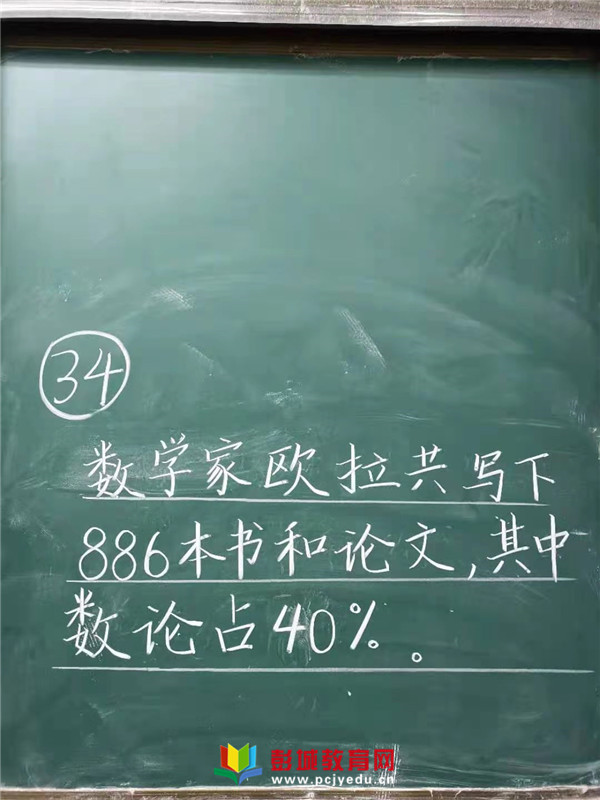 34
数学家欧拉共写下
886本书和论文,其中
数论占40%。
彭城教育网
www.pcjyedu.cn